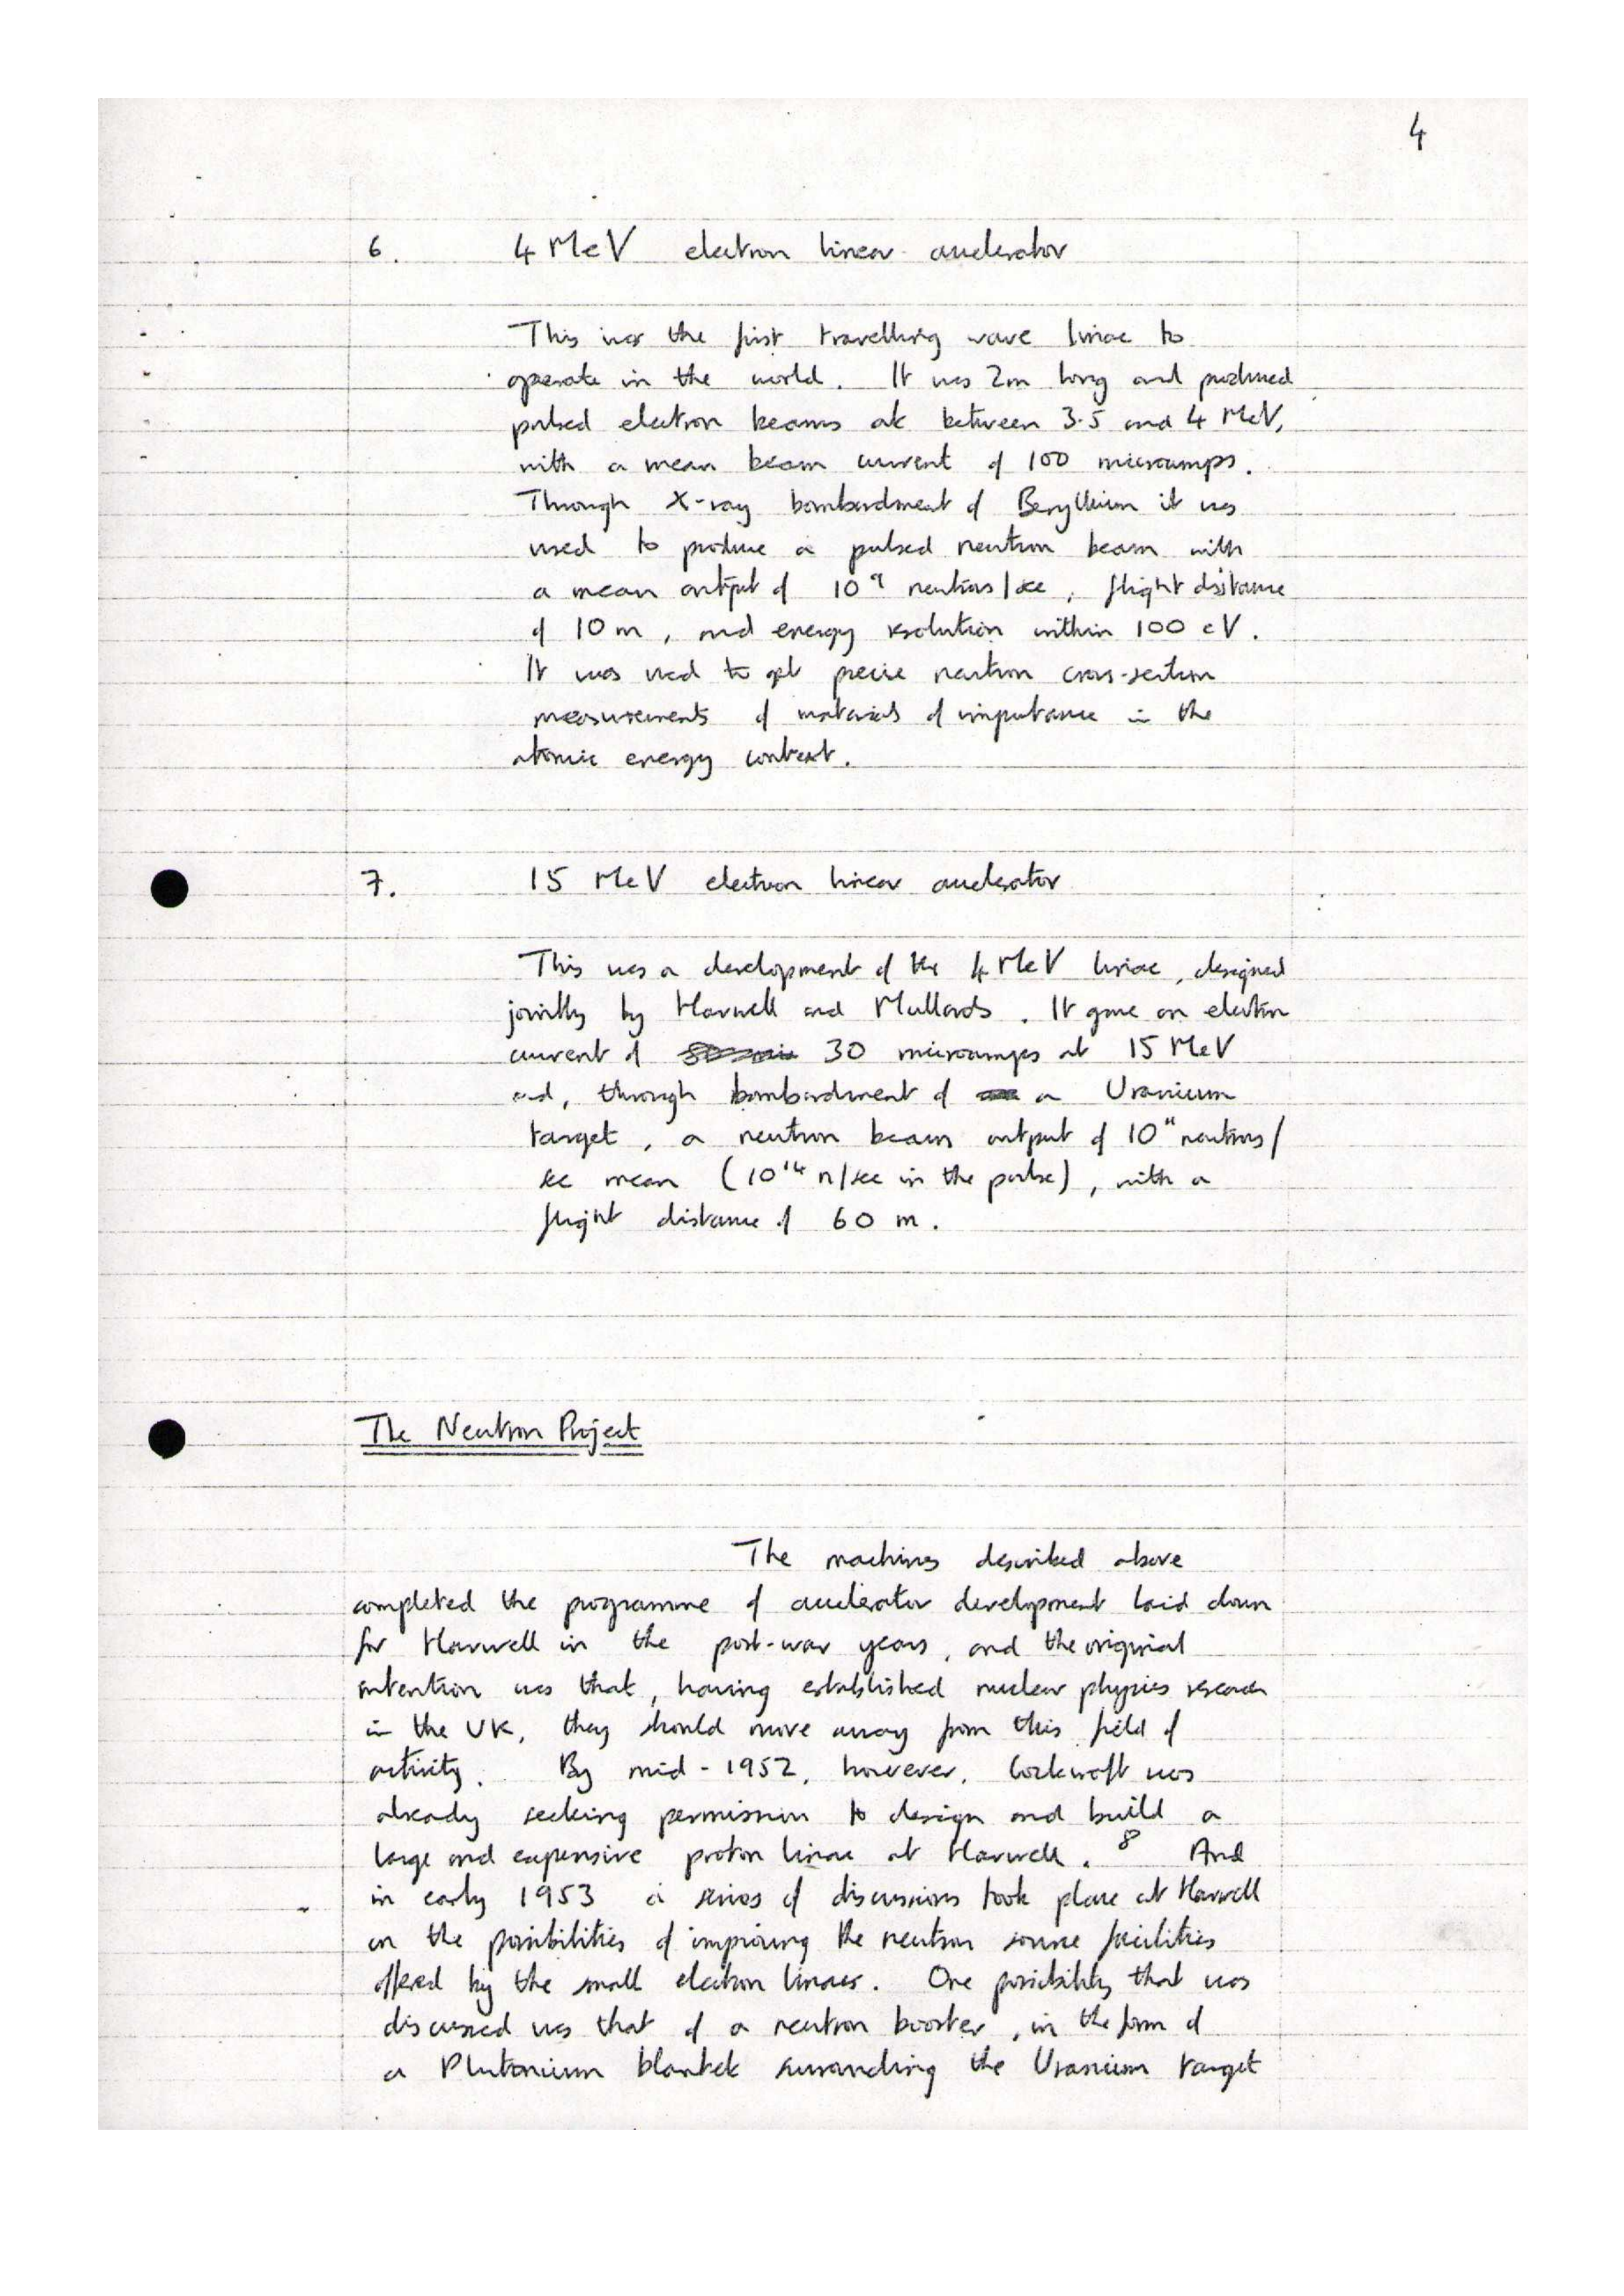 4
6. 4 MeV electron linear accelerator
This was the first travelling wave linac to
operate in the world. It was 2m long and produced
pulsed electron beams at between 3.5 and 4 MeV,
with a mean beam current of 100 microamps.
Through X-ray bombardment of Beryllium it was
used to produce a pulsed neutron beam with
a mean output of 10⁹ neutrons/sec, flight distance
of 10 m, and energy resolution within 100 eV.
It was used to get precise neutron cross-section
measurements of materials of importance in the
atomic energy context.
7. 15 MeV electron linear accelerator
This was a development of the 4 MeV linac, designed
jointly by Harwell and Mullards. It gave an electron
current of 30 microamps at 15 MeV
and, through bombardment of a Uranium
target, a neutron beam output of 10¹¹ neutrons/
sec mean (10¹⁴ n/sec in the pulse), with a
flight distance of 60 m.
The Neutron Project
The machines described above
completed the programme of accelerator development laid down
for Harwell in the post-war years, and the original
intention was that, having established nuclear physics research
in the UK, they should move away from this field of
activity. By mid-1952, however, Cockcroft was
already seeking permission to design and build a
large and expensive proton linac at Harwell.⁸ And
in early 1953 a series of discussions took place at Harwell
on the possibilities of improving the neutron source facilities
offered by the small electron linacs. One possibility that was
discussed was that of a neutron booster, in the form of
a Plutonium blanket surrounding the Uranium target